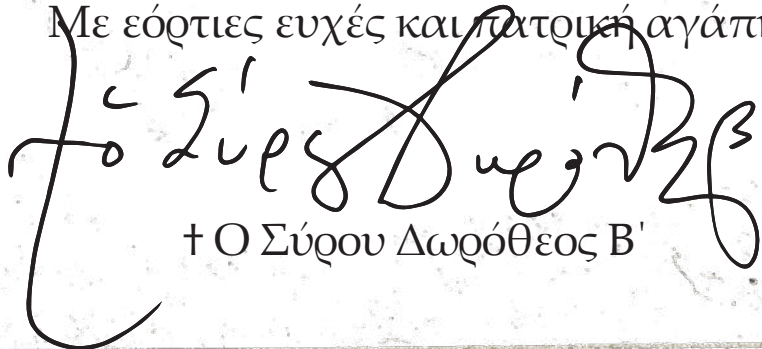 Με εόρτιες ευχές και πατρική αγάπη
† ὁ Σύρου Δωρόθεος Β
† Ο Σύρου Δωρόθεος Β'